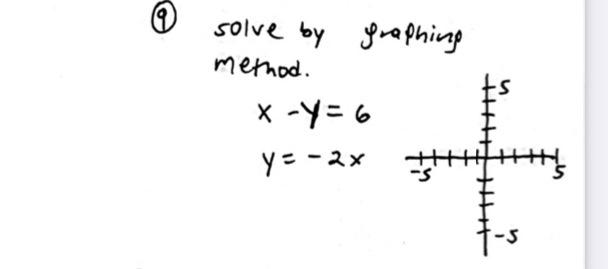 9 solve by graphing
method.
x - y = 6
y = -2x
5
-5 5
-5